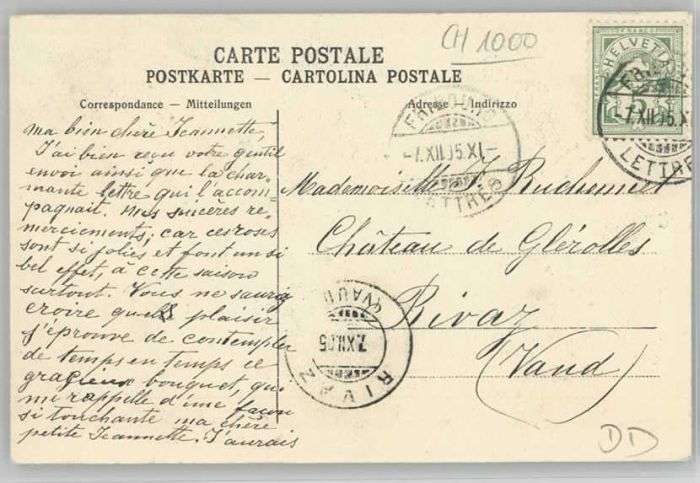 CH 1000
CARTE POSTALE
POSTKARTE — CARTOLINA POSTALE
Correspondance — Mitteilungen
Adresse — Indirizzo
HELVETIA
5
LETTRES
FRIBOURG
-7.XII.05.XI-
LETTRES
ma bien chère Jeannette,
J'ai bien reçu votre gentil
envoi ainsi que la char-
mante lettre qui l'accom-
pagnait. Mes sincères re-
merciements; car ces roses
sont si jolies et font un si
bel effet, à cette saison
surtout. Vous ne sauriez
croire quel plaisir
j'éprouve de contempler
de temps en temps ce
gracieux bouquet, qui
me rappelle d'une façon
si touchante ma chère
petite Jeannette. J'aurais
Mademoiselle J.
Château de Glérolles
Rivaz
(Vaud)
RIVAZ
(VAUD)
7.XII.05
DD